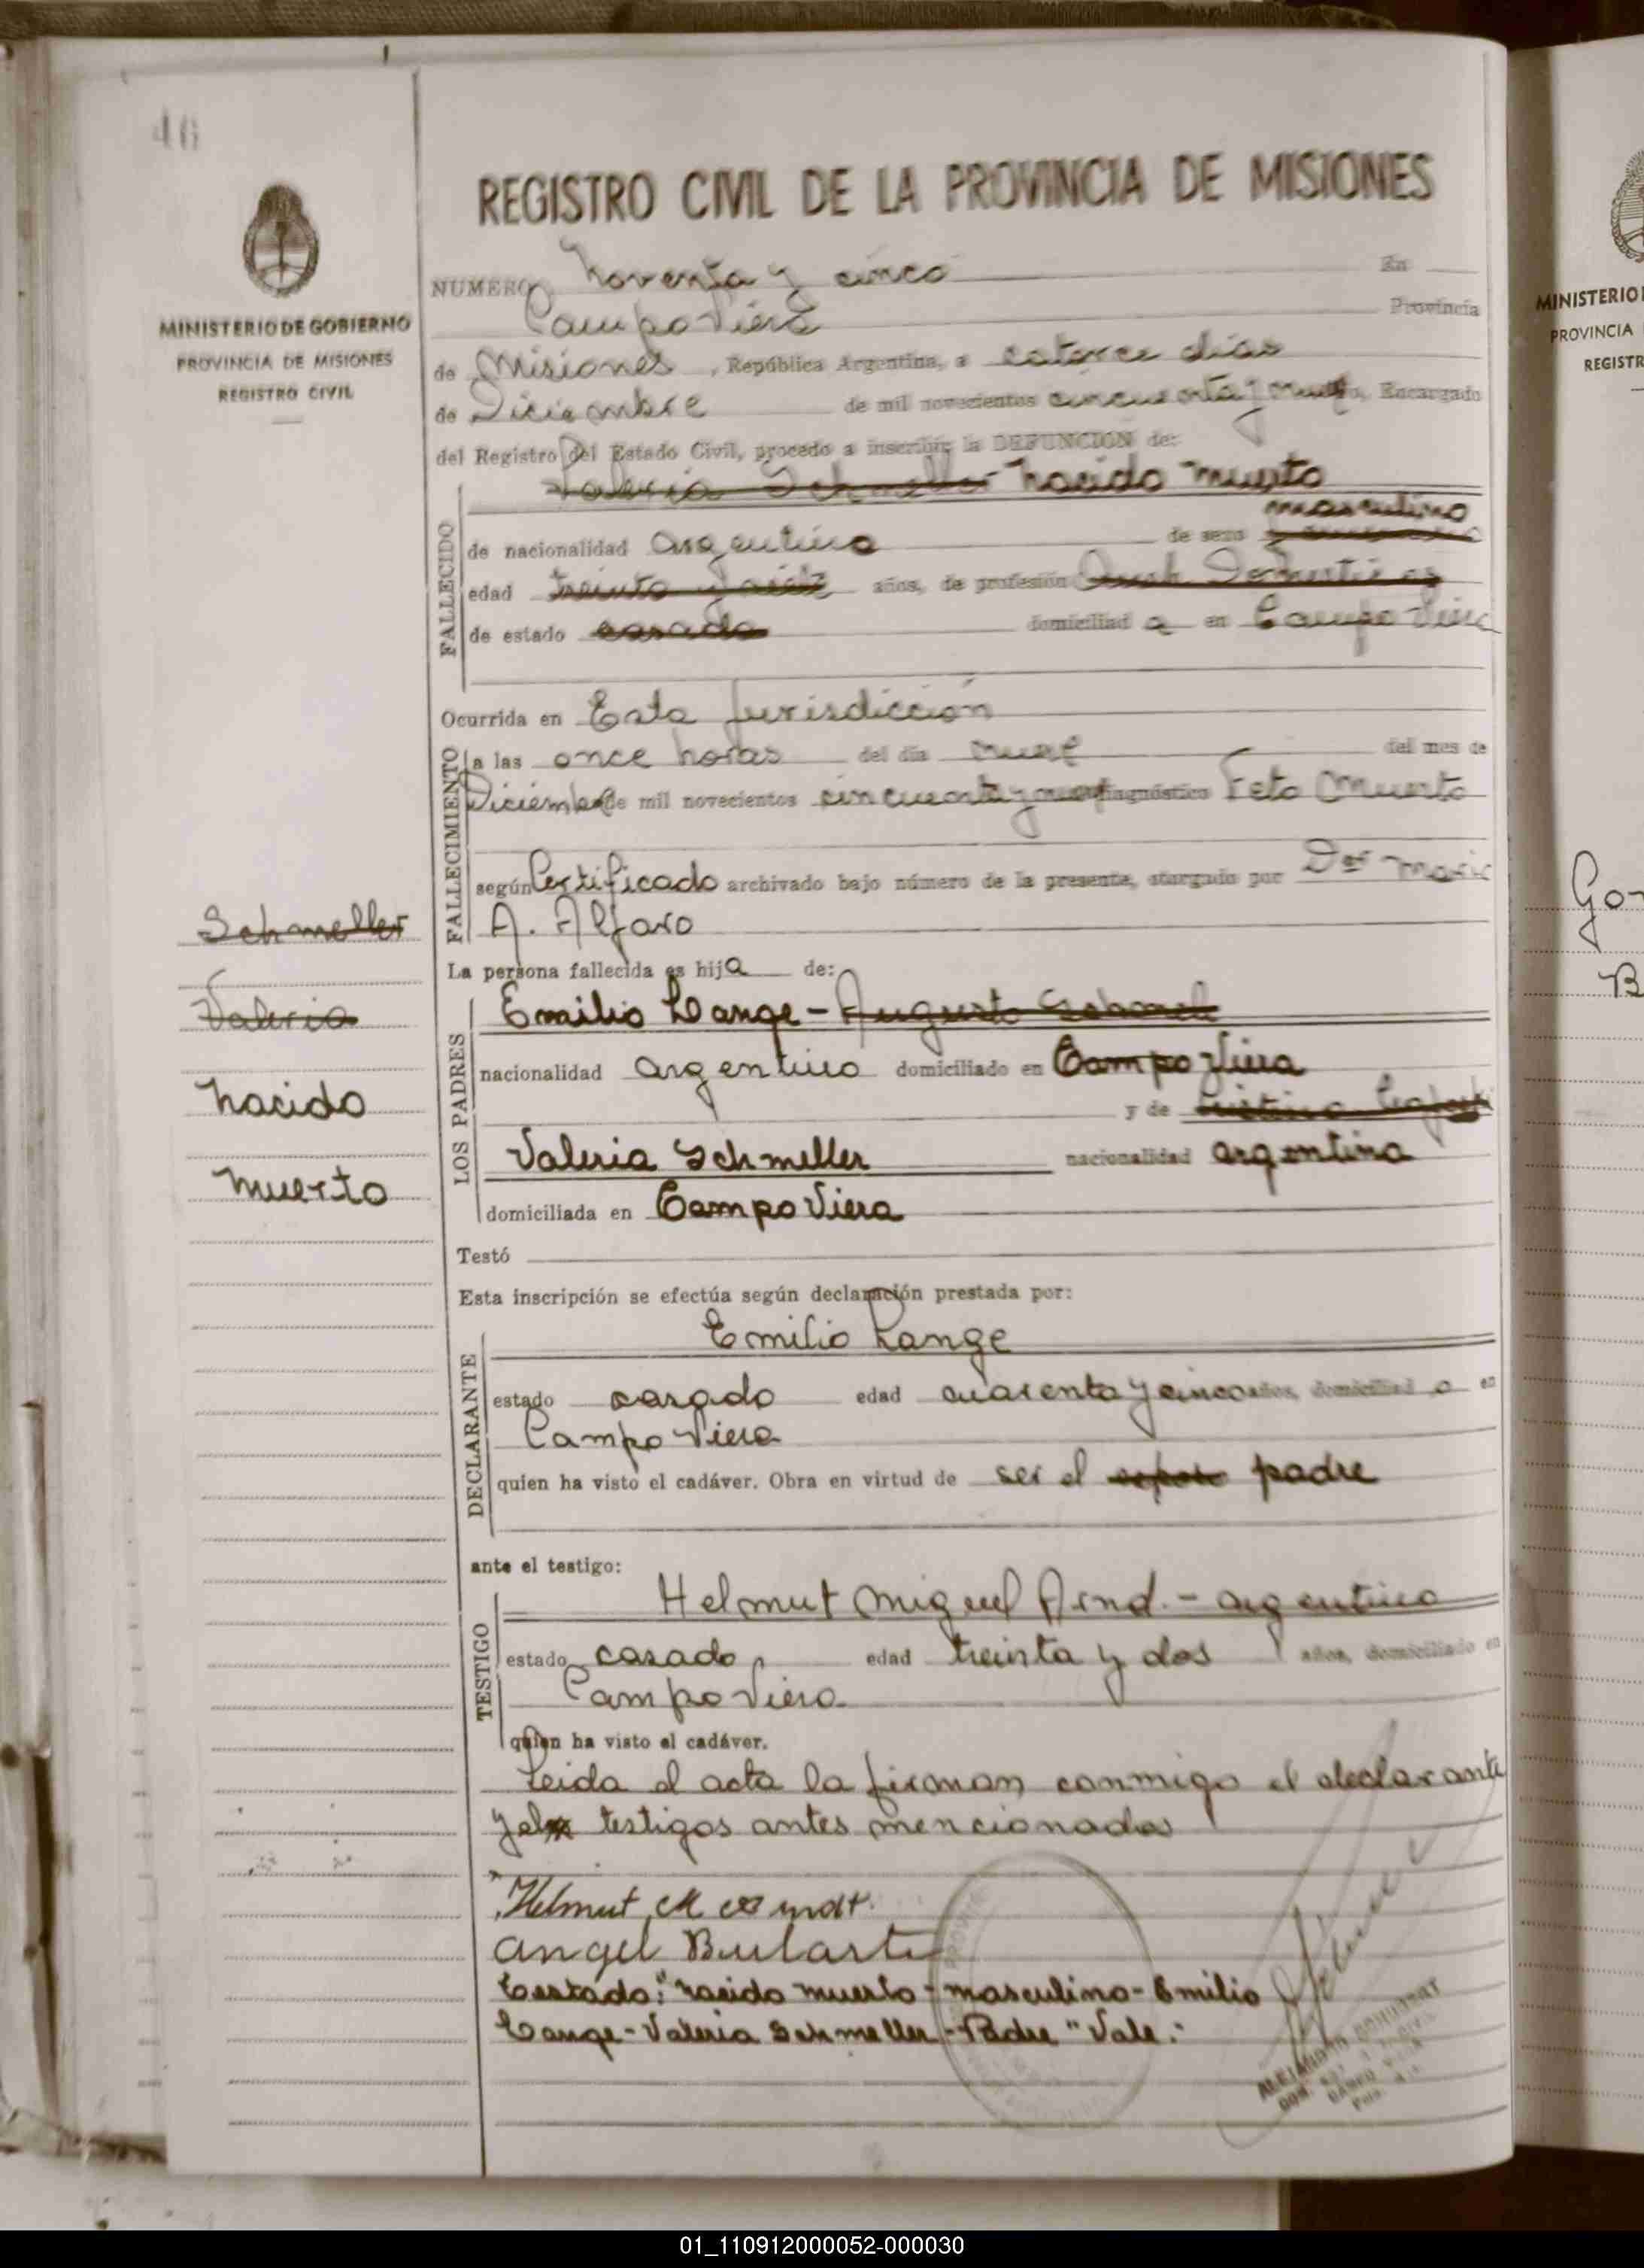 46
REGISTRO CIVIL DE LA PROVINCIA DE MISIONES
MINISTERIO DE GOBIERNO
PROVINCIA DE MISIONES
REGISTRO CIVIL
NUMERO Noventa y cinco En
Campo Viera Provincia
de Misiones, República Argentina, a catorce dias
de Diciembre de mil novecientos cincuenta y nueve, Encargado
del Registro del Estado Civil, procedo a inscribir la DEFUNCION de:
FALLECIDO
Valeria Schmeller nacido muerto
masculino
de nacionalidad argentina de sexo
edad treinta y siete años, de profesión Queh. Domesticos
de estado casada domiciliad a en Campo Viera
Ocurrida en Esta Jurisdicción
FALLECIMIENTO
a las once horas del día nueve del mes de
Diciembre de mil novecientos cincuenta y nueve diagnóstico Feto Muerto
según Certificado archivado bajo número de la presente, otorgado por Dor Mario
A. Alfaro
La persona fallecida es hija de:
LOS PADRES
Emilio Lange - Augusto Schmel
nacionalidad argentino domiciliado en Campo Viera
y de Cristina
Valeria Schmeller nacionalidad argentina
domiciliada en Campo Viera
Schmeller
Valeria
nacido
muerto
Testó
Esta inscripción se efectúa según declaración prestada por:
DECLARANTE
Emilio Lange
estado casado edad cuarenta y cinco años, domiciliad o en
Campo Viera
quien ha visto el cadáver. Obra en virtud de ser el esposo padre
ante el testigo:
TESTIGO
Helmut Miguel Arnd. - argentino
estado casado edad treinta y dos años, domiciliado en
Campo Viera
quien ha visto el cadáver.
Leida el acta la firman conmigo el declarante
y el testigos antes mencionados
Helmut M
Angel
Testado: "nacido muerto - masculino - Emilio
Lange - Valeria Schmeller - Padre" Vale.-
ALEJANDRO
CAMPO VIERA
MINISTERIO
PROVINCIA
REGISTR
Go
B
01_110912000052-000030